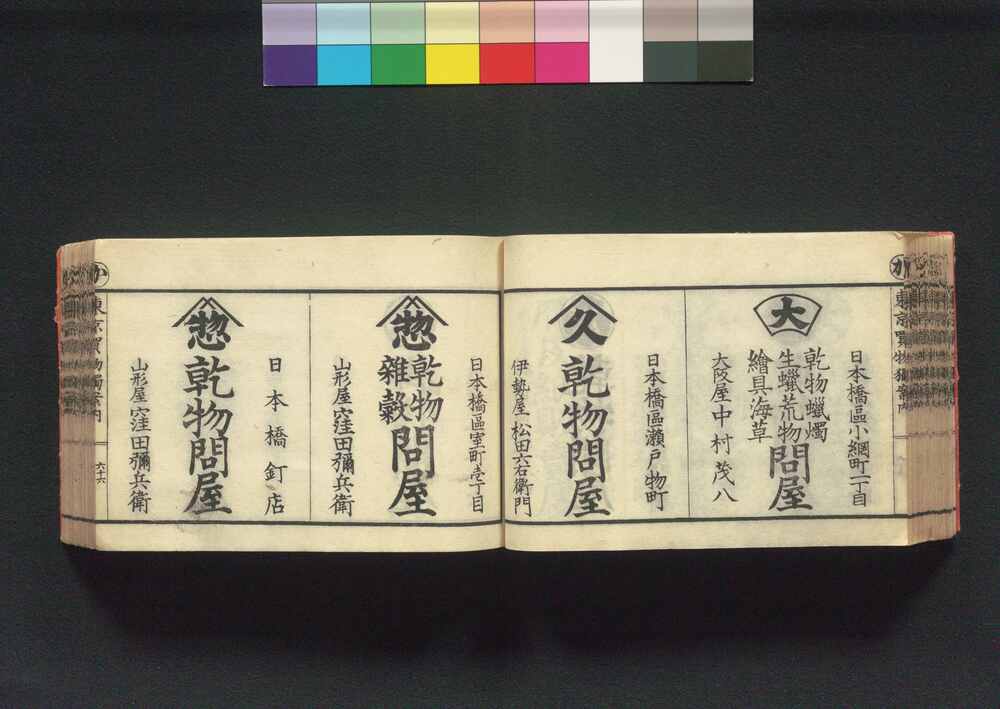 か
東京買物獨案內
日本橋區小網町一丁目
大
乾物蠟燭
生蠟荒物
繪具海草
問屋
大阪屋中村茂八
日本橋區瀨戸物町
久
乾物問屋
伊勢屋松田六右衞門
日本橋區室町壱丁目
惣
乾物
雜穀
問屋
山形屋窪田彌兵衛
日本橋釘店
惣
乾物問屋
山形屋窪田彌兵衛
か
東京買物獨案内
六十六